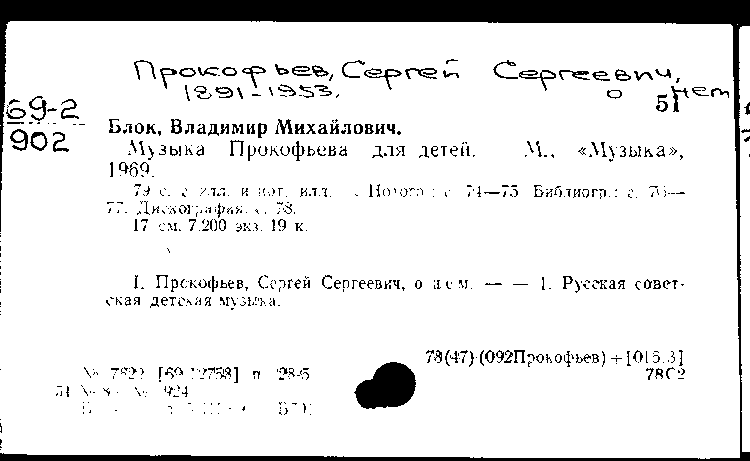 Прокофьев, Сергей Сергеевич,
1891-1953. о нем
51
69-2
902
Блок, Владимир Михайлович.
Музыка Прокофьева для детей. М., «Музыка»,
1969.
79 с. с илл. и нот. илл. Нотогр.: с. 74—75. Библиогр.: с. 76—
77. Дискография: с. 78.
17 см. 7.200 экз. 19 к.
I. Прокофьев, Сергей Сергеевич, о нем. — — 1. Русская совет-
ская детская музыка.
78(47)(092Прокофьев)+[015.3]
78С2
№ 7822 [69-12758] п 28-5
51 № 924